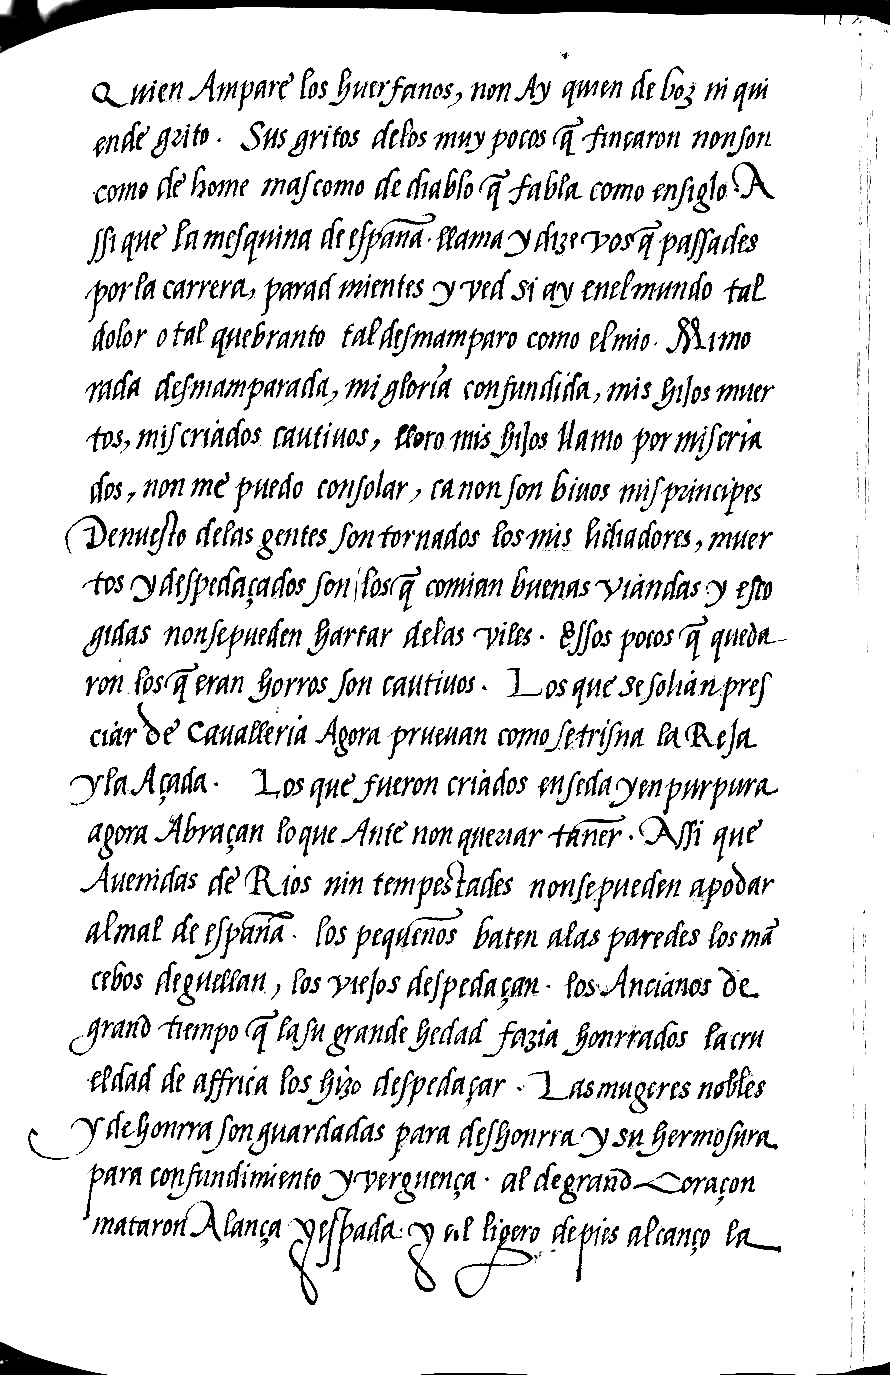 Quien Ampare los huerfanos, non Ay quien de boz ni qui
ende grito. Sus gritos delos muy pocos q̃ fincaron non son
como de home mas como de diablo q̃ fabla como en siglo A
ssi que la mesquina de españa. llama y dize vos q̃ passades
por la carrera, parad mientes y ved si ay enel mundo tal
dolor o tal quebranto tal desmamparo como el mio. Mi mo
rada desmamparada, mi gloria confundida, mis hijos muer
tos, mis criados cautiuos, lloro mis hijos llamo por mis cria
dos, non me puedo consolar, ca non son biuos mis principes
Denuesto delas gentes son tornados los mis lidiadores, muer
tos y despedaçados son los q̃ comian buenas viandas y esco
gidas non se pueden hartar delas viles. Essos pocos q̃ queda
ron los q̃ eran horros son cautiuos. Los que se solian pres
ciar de Cavalleria Agora prueuan como se trisna la Reja
y la Açada. Los que fueron criados en seda y en purpura
agora Abraçan lo que Ante non querian tañer. Assi que
Auenidas de Rios nin tempestades non se pueden apodar
al mal de españa. los pequeños baten alas paredes los mã
cebos deguellan, los viejos despedaçan. los Ancianos de
grand tiempo q̃ la su grande hedad fazia honrrados la cru
eldad de affrica los hizo despedaçar. Las mugeres nobles
y de honrra son guardadas para deshonrra y su hermosura
para confundimiento y verguença. al de grand Coraçon
mataron A lança y espada y al ligero de pies alcanço la